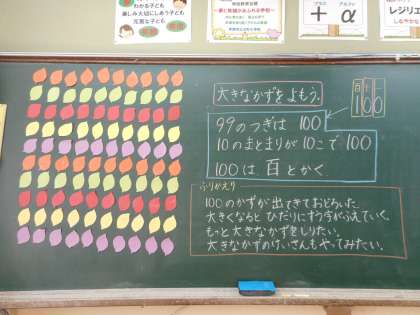 わかる子ども
楽しみ大切にしあう子ども
元気な子ども
プラス
アルファ
+ α
レジリエ
大きなかずをよもう。
百 十 一
100
99のつぎは 100
10のまとまりが 10こで 100
100は 百 とかく
ふりかえり
100のかずが出てきておどろいた。
大きくなると ひだりにすう字がふえていく。
もっと大きなかずをしりたい。
大きなかずのけいさんもやってみたい。